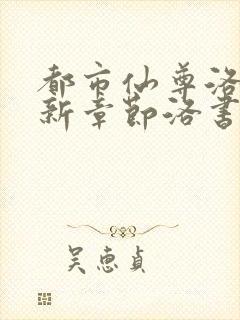 都市仙尊洛
新章节洛书
吴惠贞